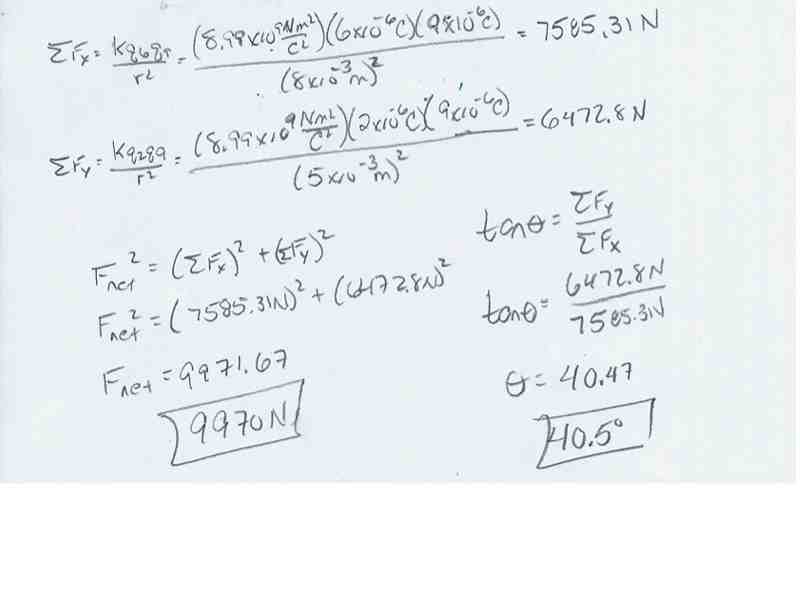 ΣFx = Kq6q9/r² = (8.99x10⁹ Nm²/C²)(6x10⁻⁶C)(9x10⁻⁶C)/(8x10⁻³m)² = 7585.31 N
ΣFy = Kq2q9/r² = (8.99x10⁹ Nm²/C²)(2x10⁻⁶C)(9x10⁻⁶C)/(5x10⁻³m)² = 6472.8 N
Fnet² = (ΣFx)² + (ΣFy)²
Fnet² = (7585.31N)² + (6472.8N)²
Fnet = 9971.67
9970 N
tanθ = ΣFy/ΣFx
tanθ = 6472.8 N/7585.31N
θ = 40.47
40.5°